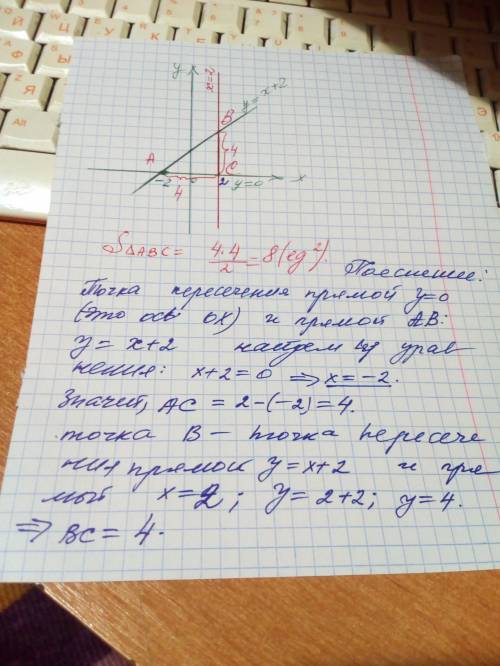 y
x=2
y=x+2
B
A
4
C
-2
2
y=0
x
4
S△ABC = 4·4/2 = 8 (ед²).
Пояснение:
Точка пересечения прямой y=0
(это ось OX) и прямой AB:
y = x+2 найдем из урав
нения: x+2=0 ⇒ x=-2.
Значит, AC = 2-(-2)=4.
точка B – точка пересече
ния прямой y=x+2 и пря
мой x=2; y=2+2; y=4.
⇒ BC = 4.